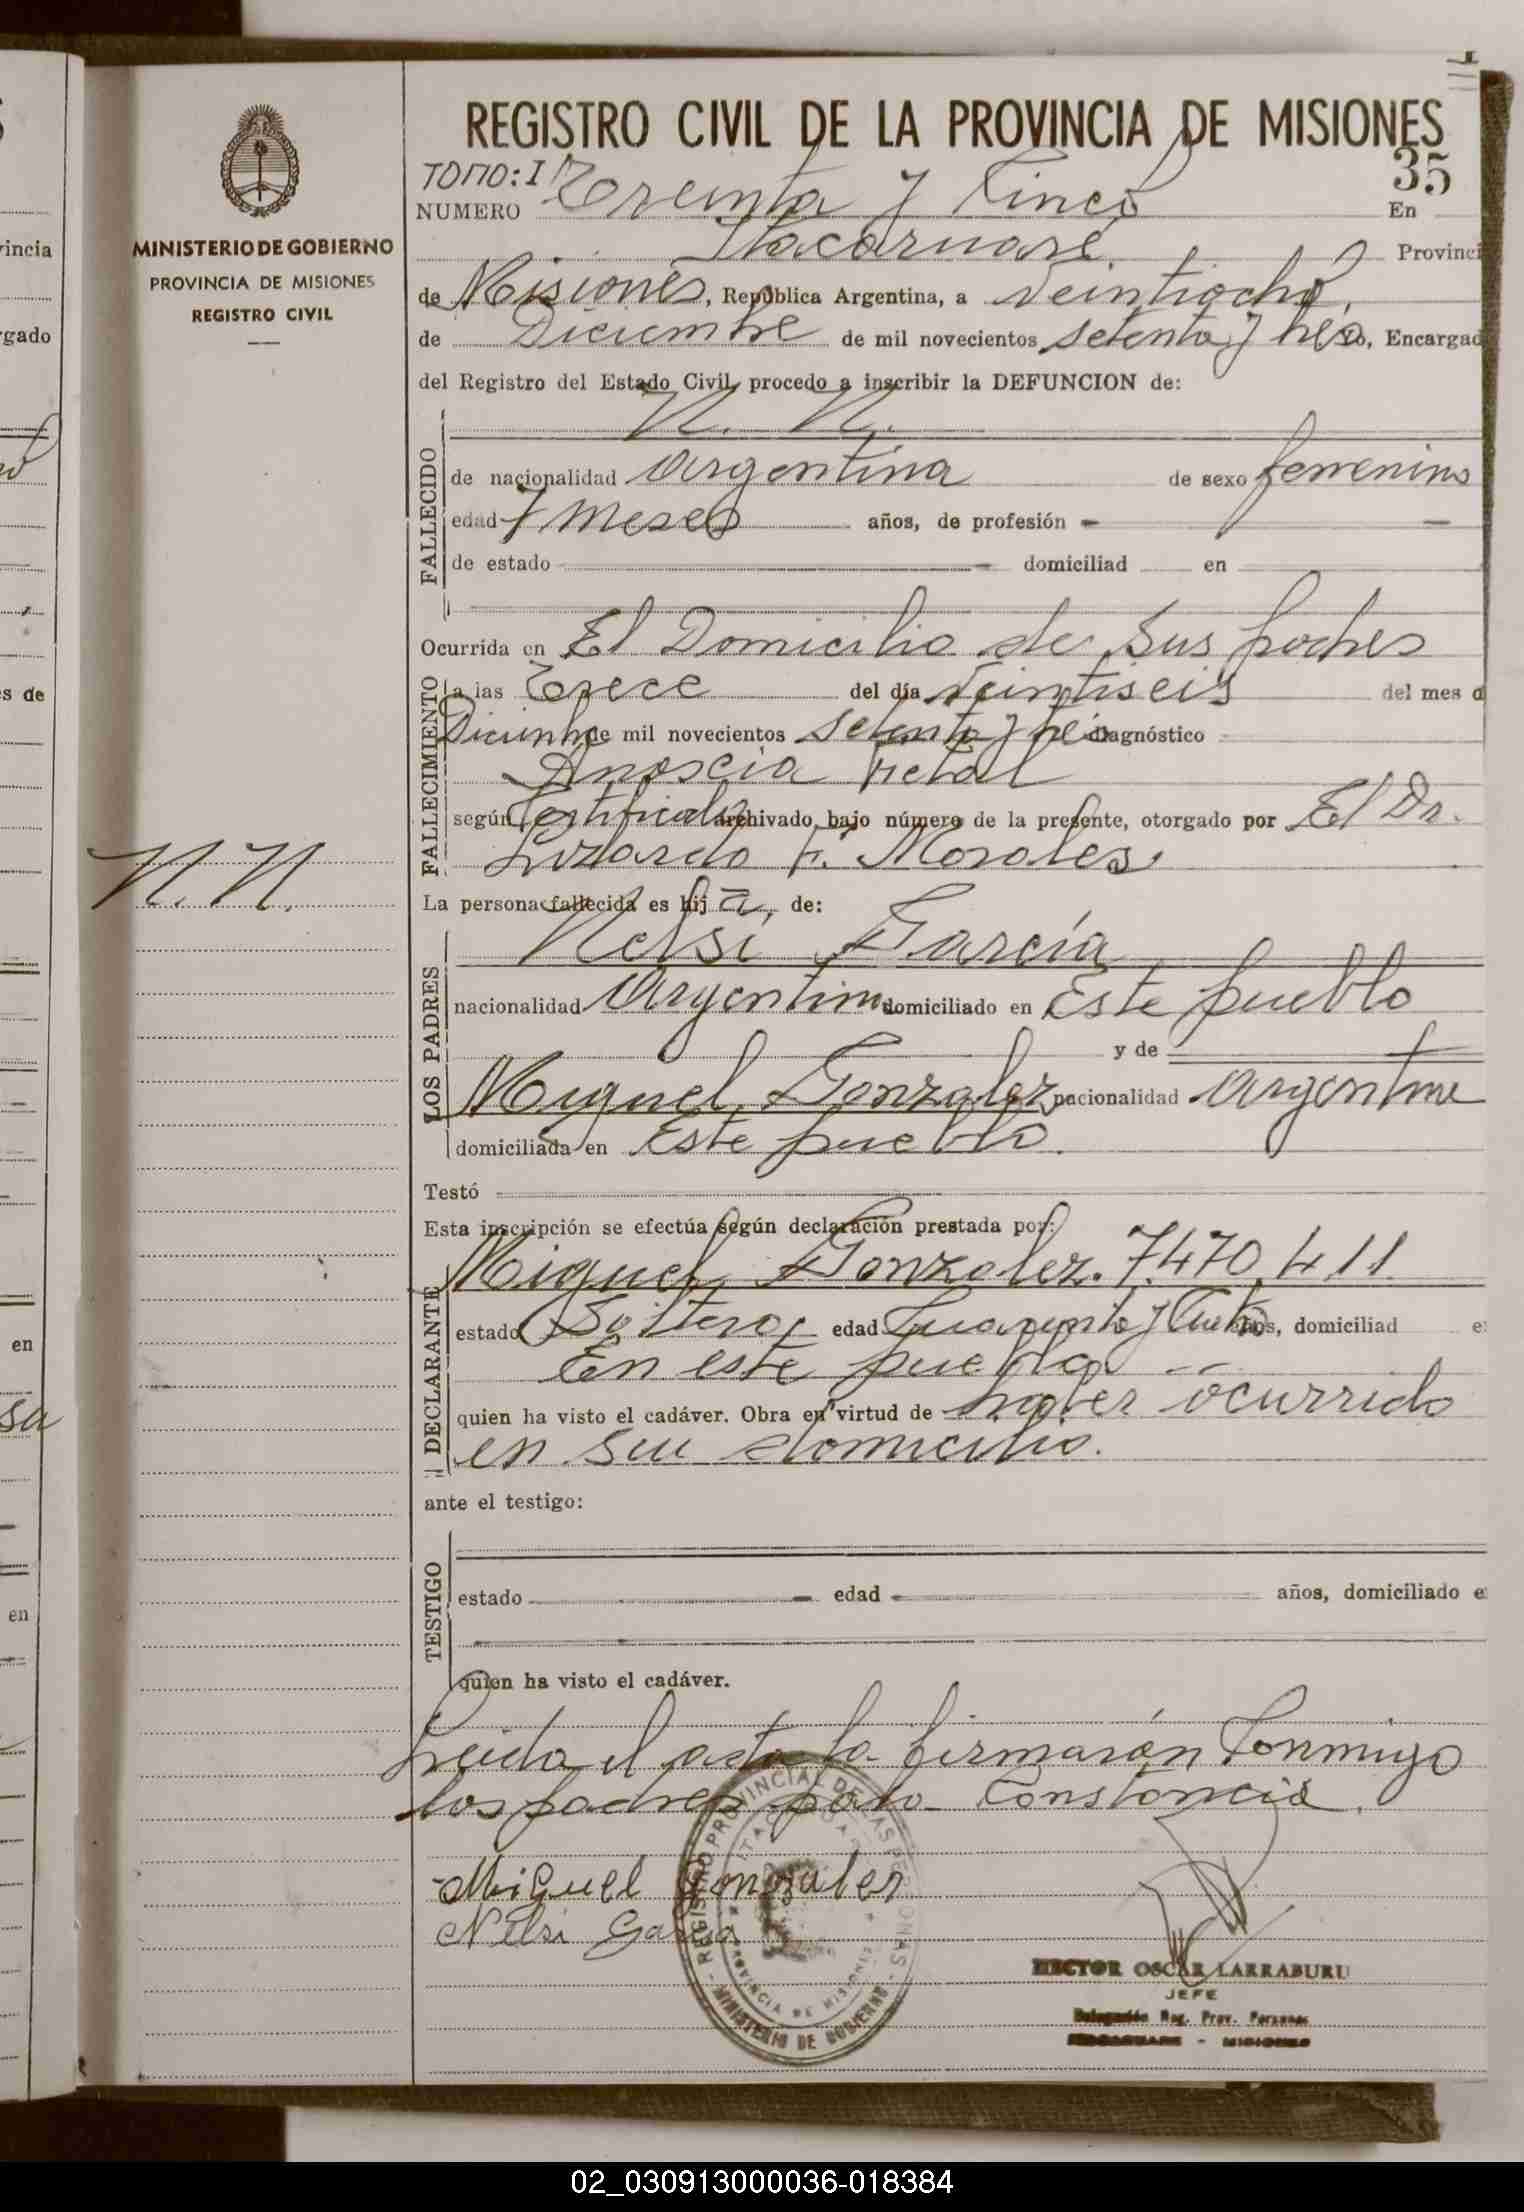 REGISTRO CIVIL DE LA PROVINCIA DE MISIONES
35
TOMO: I
NUMERO Treinta y Cinco En
Itacaruaré. Provinci
de Misiones, República Argentina, a veintiocho,
de Diciembre de mil novecientos setenta y tres Yo, Encargad
del Registro del Estado Civil, procedo a inscribir la DEFUNCION de:
N. N.
FALLECIDO
de nacionalidad argentina de sexo femenino
edad 7 meses años, de profesión —
de estado — domiciliad en
Ocurrida en El Domicilio de sus padres
FALLECIMIENTO
a las Trece del día veintiseis del mes d
Diciembre de mil novecientos setenta y tres diagnóstico
Anoxcia Fetal
según Certificado archivado bajo número de la presente, otorgado por El Dr.
Lizardo F. Morales
La persona fallecida es hij a, de:
LOS PADRES
Nelsi García
nacionalidad Argentina domiciliado en Este pueblo
y de
Miguel Gonzalez nacionalidad argentina
domiciliada en Este pueblo.
Testó
Esta inscripción se efectúa según declaración prestada por:
DECLARANTE
Miguel Gonzalez. 7.470.411
estado Soltero, edad años, domiciliad e
En este pueblo —
quien ha visto el cadáver. Obra en virtud de haber ocurrido
en su domicilio.
ante el testigo:
TESTIGO
estado — edad años, domiciliado e
quien ha visto el cadáver.
Leida el acta la firmarón Conmigo
los padres para Constancia.
Miguel Gonzalez
Nelsi Garcia
REGISTRO PROVINCIAL DE LAS PERSONAS - MINISTERIO DE GOBIERNO -
PROVINCIA DE MISIONES
HECTOR OSCAR LARRABURU
JEFE
Delegación Reg. Prov. Personas
- MISIONES
MINISTERIO DE GOBIERNO
PROVINCIA DE MISIONES
REGISTRO CIVIL
N. N.
vincia
rgado
s de
en
sa
en
02_030913000036-018384